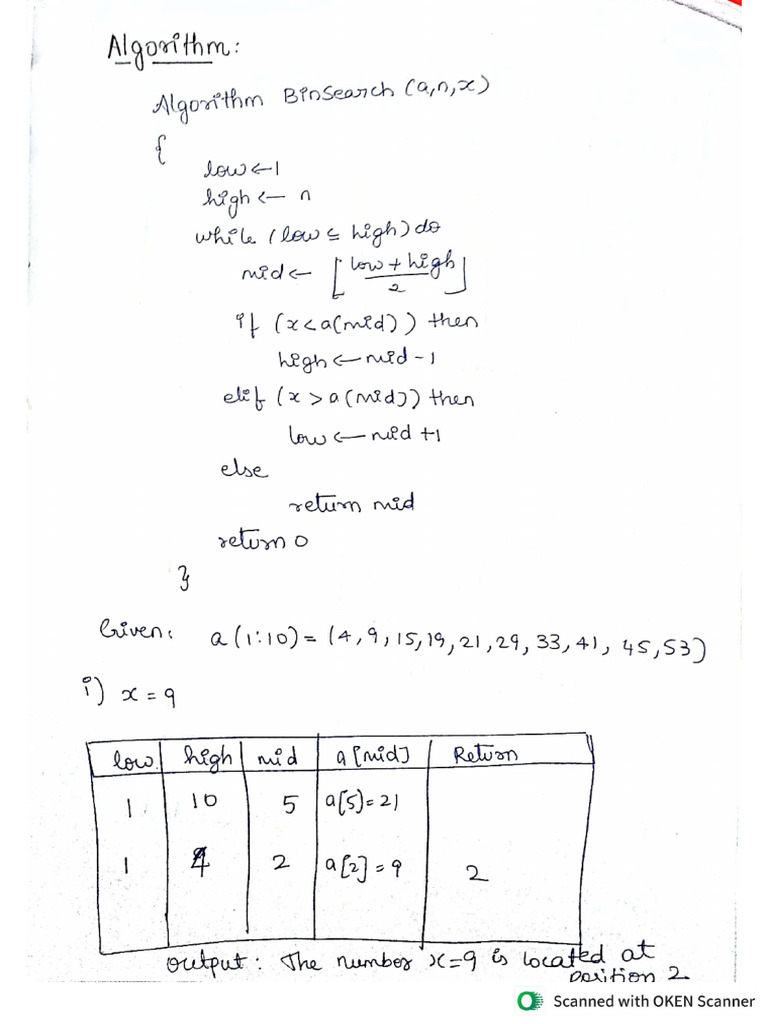 Algorithm:
Algorithm BinSearch (a,n,x)
{
low ← 1
high ← n
while (low ≤ high) do
mid ← ⌊(low + high)/2⌋
if (x < a(mid)) then
high ← mid - 1
elif (x > a(mid)) then
low ← mid + 1
else
return mid
return 0
}
Given: a(1:10) = (4, 9, 15, 19, 21, 29, 33, 41, 45, 53)
i) x = 9
low high mid a[mid] Return
1 10 5 a[5] = 21
1 4 2 a[2] = 9 2
output: The number x=9 is located at
position 2
Scanned with OKEN Scanner